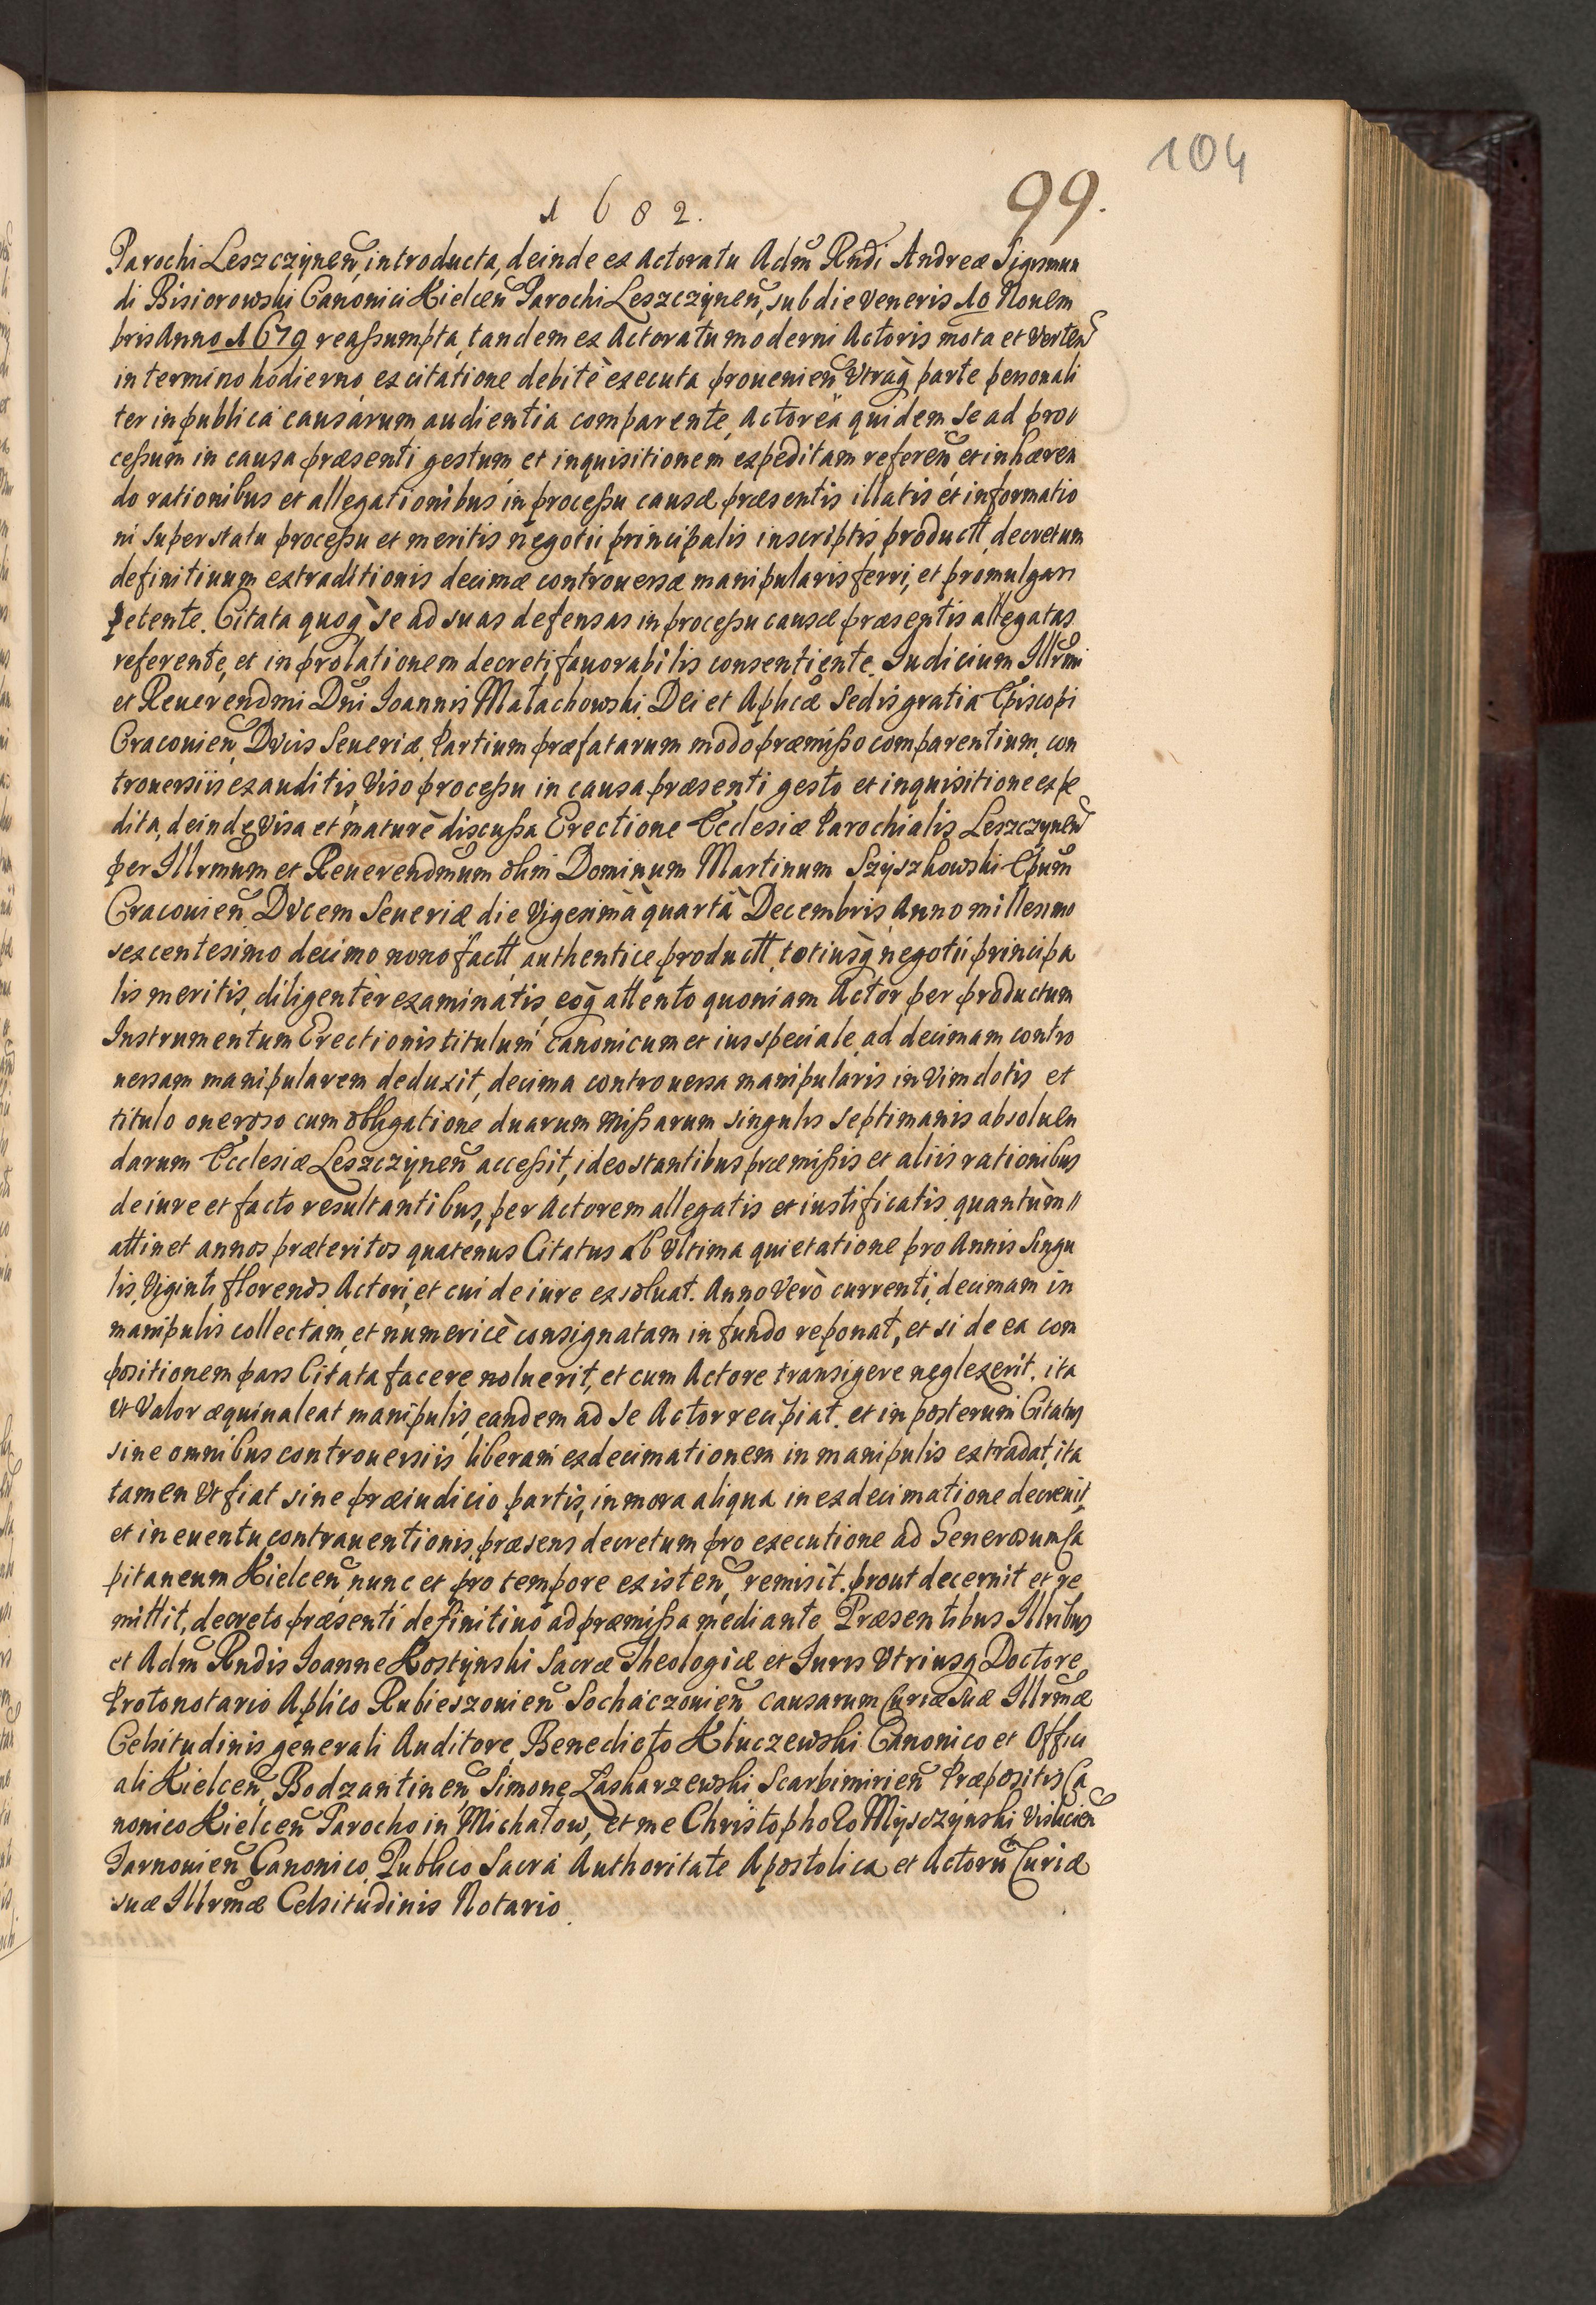 104
99.
1682.
Parochi Leszczynen̄, introducta, deinde ex Actoratu Adm̄ Rndi Andreæ Sigismun
di Bisiorowski Canonici Kielcen̄ Parochi Leszczynen̄, sub die Veneris 10 Nouem
bris Anno 1679 reaſsumpta, tandem ex Actoratu moderni Actoris mota et Verten̄
in termino hodierno, ex citatione debitè executa prouenien̄ Vtraq̀ parte personali
ter in publica causarum audientia comparente, Actorea quidem se ad pro
ceſsum in causa præsenti gestum, et inquisitionem expeditam referen̄, et inhæren
do rationibus et allegationibus, in proceſsu causæ præsentis illatis et informatio
ni super statu proceſsu et meritis negotii principalis in scriptis productt, decretum
definitiuum extraditionis decimæ controuersæ manipularis ferri, et promulgari
petente. Citata quoq̀ se ad suas defensas in proceſsu causæ præsentis allegatas
referente, et in prolationem decreti fauorabilis consentiente. Iudicium Illrmi
et Reuerendmi Dn̄i Ioannis Małachowski Dei et Aplicæ Sedis gratia Episcopi
Cracouien̄, Dvcis Seueriæ, Partium præfatarum modo præmiſso comparentium, con
trouersiis exauditis, Viso proceſsu in causa præsenti gesto et inquisitione expe
dita, deinde Visa et maturè discuſsa Erectione Ecclesiæ Parochialis Leszczynen̄
per Illrmum et Reuerendmum olim Dominum Martinum Szyszkowski Epum
Cracouien̄ Dvcem Seueriæ die Vigesimà quartà Decembris, Anno millesimo
sexcentesimo decimo nono factt, authentice productt, totiusq̀ negotii principa
lis meritis, diligentèr examinatis, eoq̀ attento quoniam Actor per productum
Instrumentum Erectionis titulum canonicum et ius speciale, ad decimam contro
uersam manipularem deduxit, decima controuersa manipularis in Vim dotis et
titulo oneroso cum obligatione duarum miſsarum singulis septimanis absoluen
darum Ecclesiæ Leszczynen̄ acceſsit, ideo stantibus præmiſsis et aliis rationibus
de iure et facto resultantibus, per Actorem allegatis et iustificatis quantùm //
attinet annos præteritos quatenus Citatus ab Vltima quietatione pro Annis singu
lis, Viginti florenos Actori, et cui de iure exsoluat. Anno Verò currenti, decimam in
manipulis collectam, et numericè consignatam in fundo reponat, et si de ea com
positionem pars Citata facere noluerit, et cum Actore transigere neglexerit, ita
Vt Valor æquiualeat manipulis, eandem ad se Actor recipiat. et in posterum Citatus
sine omnibus controuersiis liberam exdecimationem in manipulis extradat, ita
tamen Vt fiat sine præiudicio partis, in mora aliqua in exdecimatione decreuit,
et in euentu contrauentionis, præsens decretum pro executione ad Generosum Ca
pitaneum Kielcen̄ nunc et pro tempore existen̄, remisit. prout decernit et re
mittit, decreto præsenti definitiuo ad præmiſsa mediante. Præsentibus Illribus
et Adm̄ Rndis Ioanne Kostynski Sacræ Theologiæ et Iuris Vtriusq̀ Doctore
Protonotario Aplico Rubieszouien̄ Sochaczouien̄ causarum Curiæ suæ Illrmæ
Celsitudinis generali Auditore, Benedicto Kluczewski Canonico et Offici
ali Kielcen̄, Bodzantinen̄, Simone Zaskarzewski Scarbimirien̄ Præpositis Ca
nonico Kielcen̄ Parocho in Michałow, et me Christophoro Mysczynski Vislicien̄
Tarnouien̄ Canonico, Publico Sacra Authoritate Apostolica et Actoru̅ Curiæ
suæ Illrmæ Celsitudinis Notario.